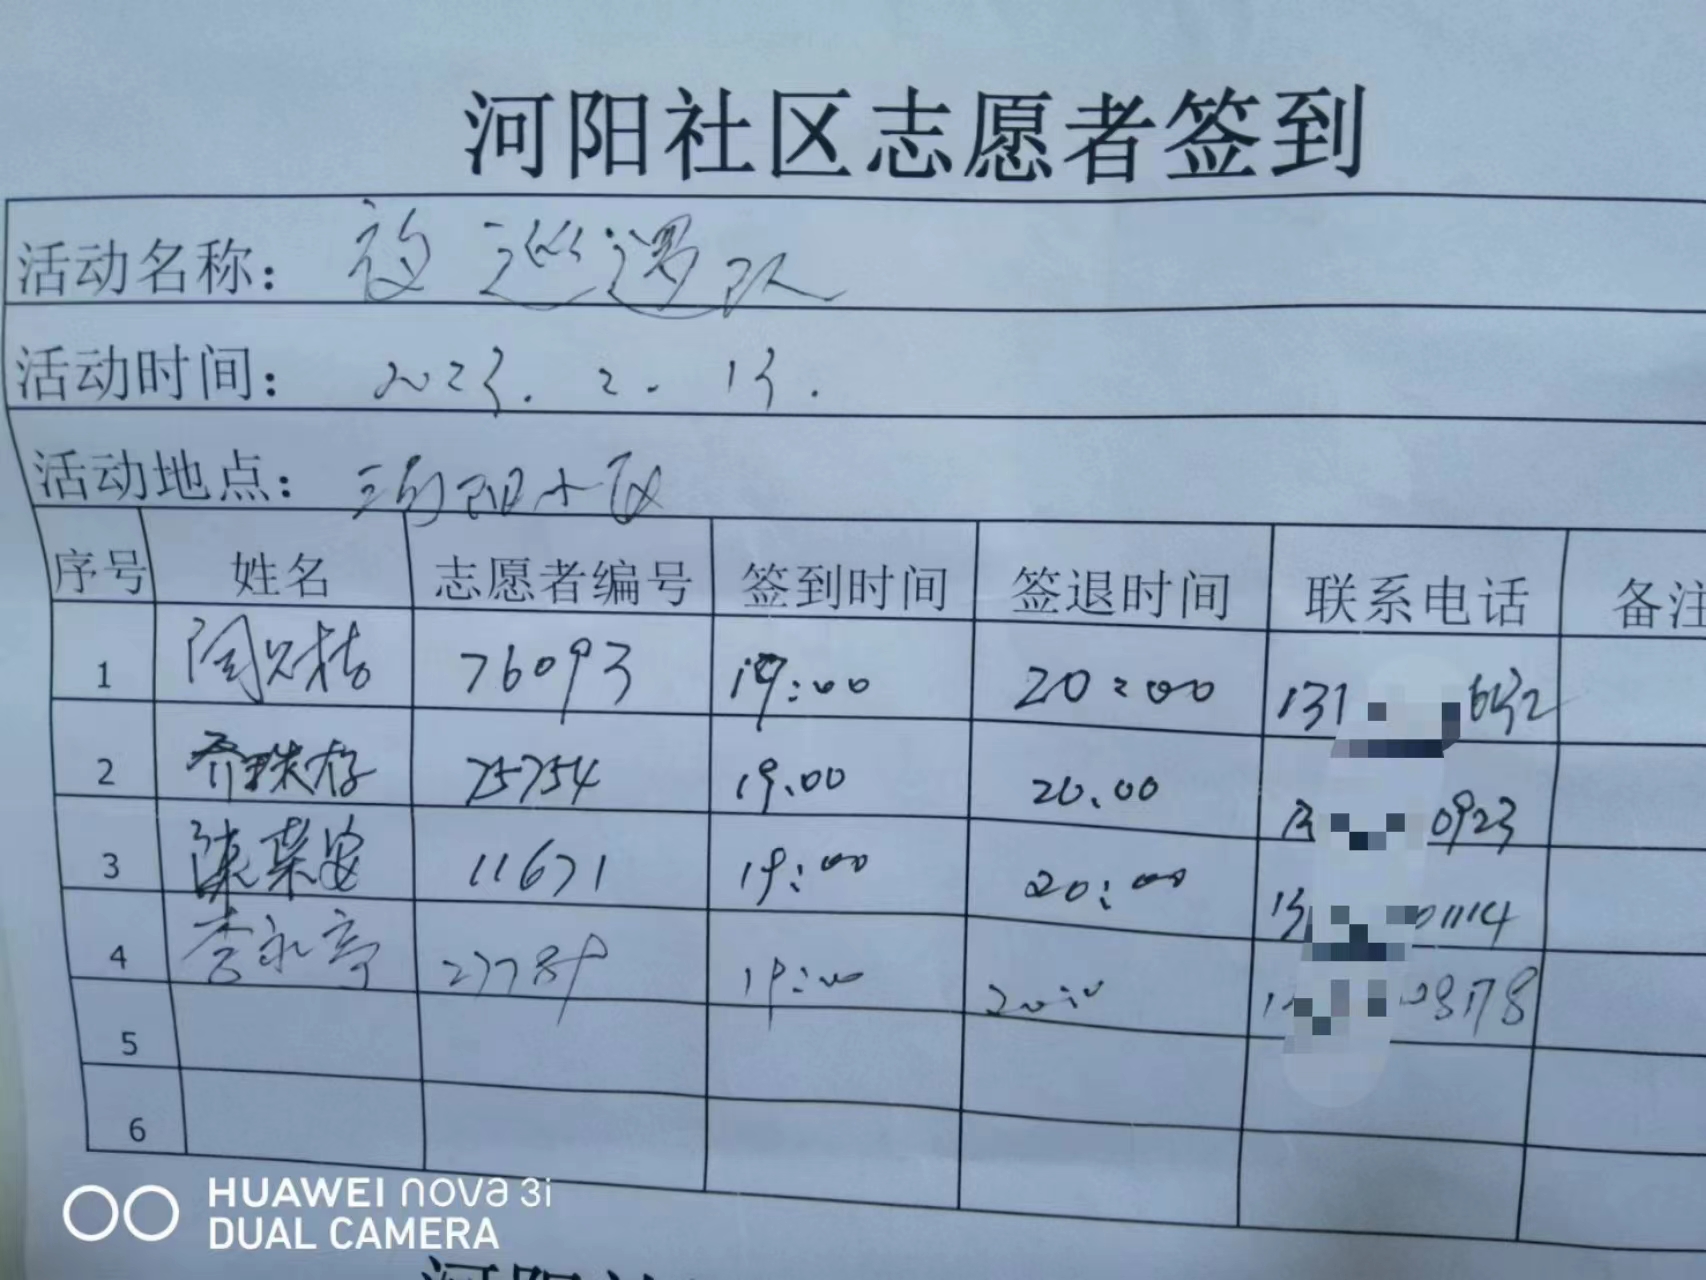 河阳社区志愿者签到
活动名称：夜巡逻队
活动时间：2023.2.13.
活动地点：河阳小区
序号 姓名 志愿者编号 签到时间 签退时间 联系电话 备注
1 76093 19:00 20:00 131 6132
2 乔珠存 75754 19.00 20.00 13 0923
3 陈荣安 11671 19:00 20:00 13 01114
4 李永亭 27789 19:00 20:00 08178
5
6
HUAWEI nova 3i
DUAL CAMERA